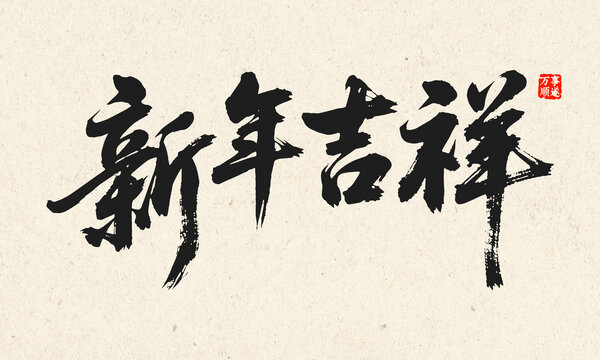 新年吉祥
万事
顺遂